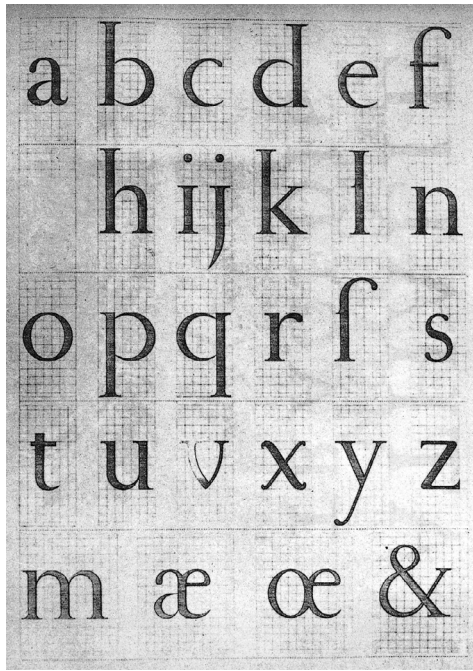 a b c d e f
h i j k l n
o p q r ſ s
t u v x y z
m æ œ &